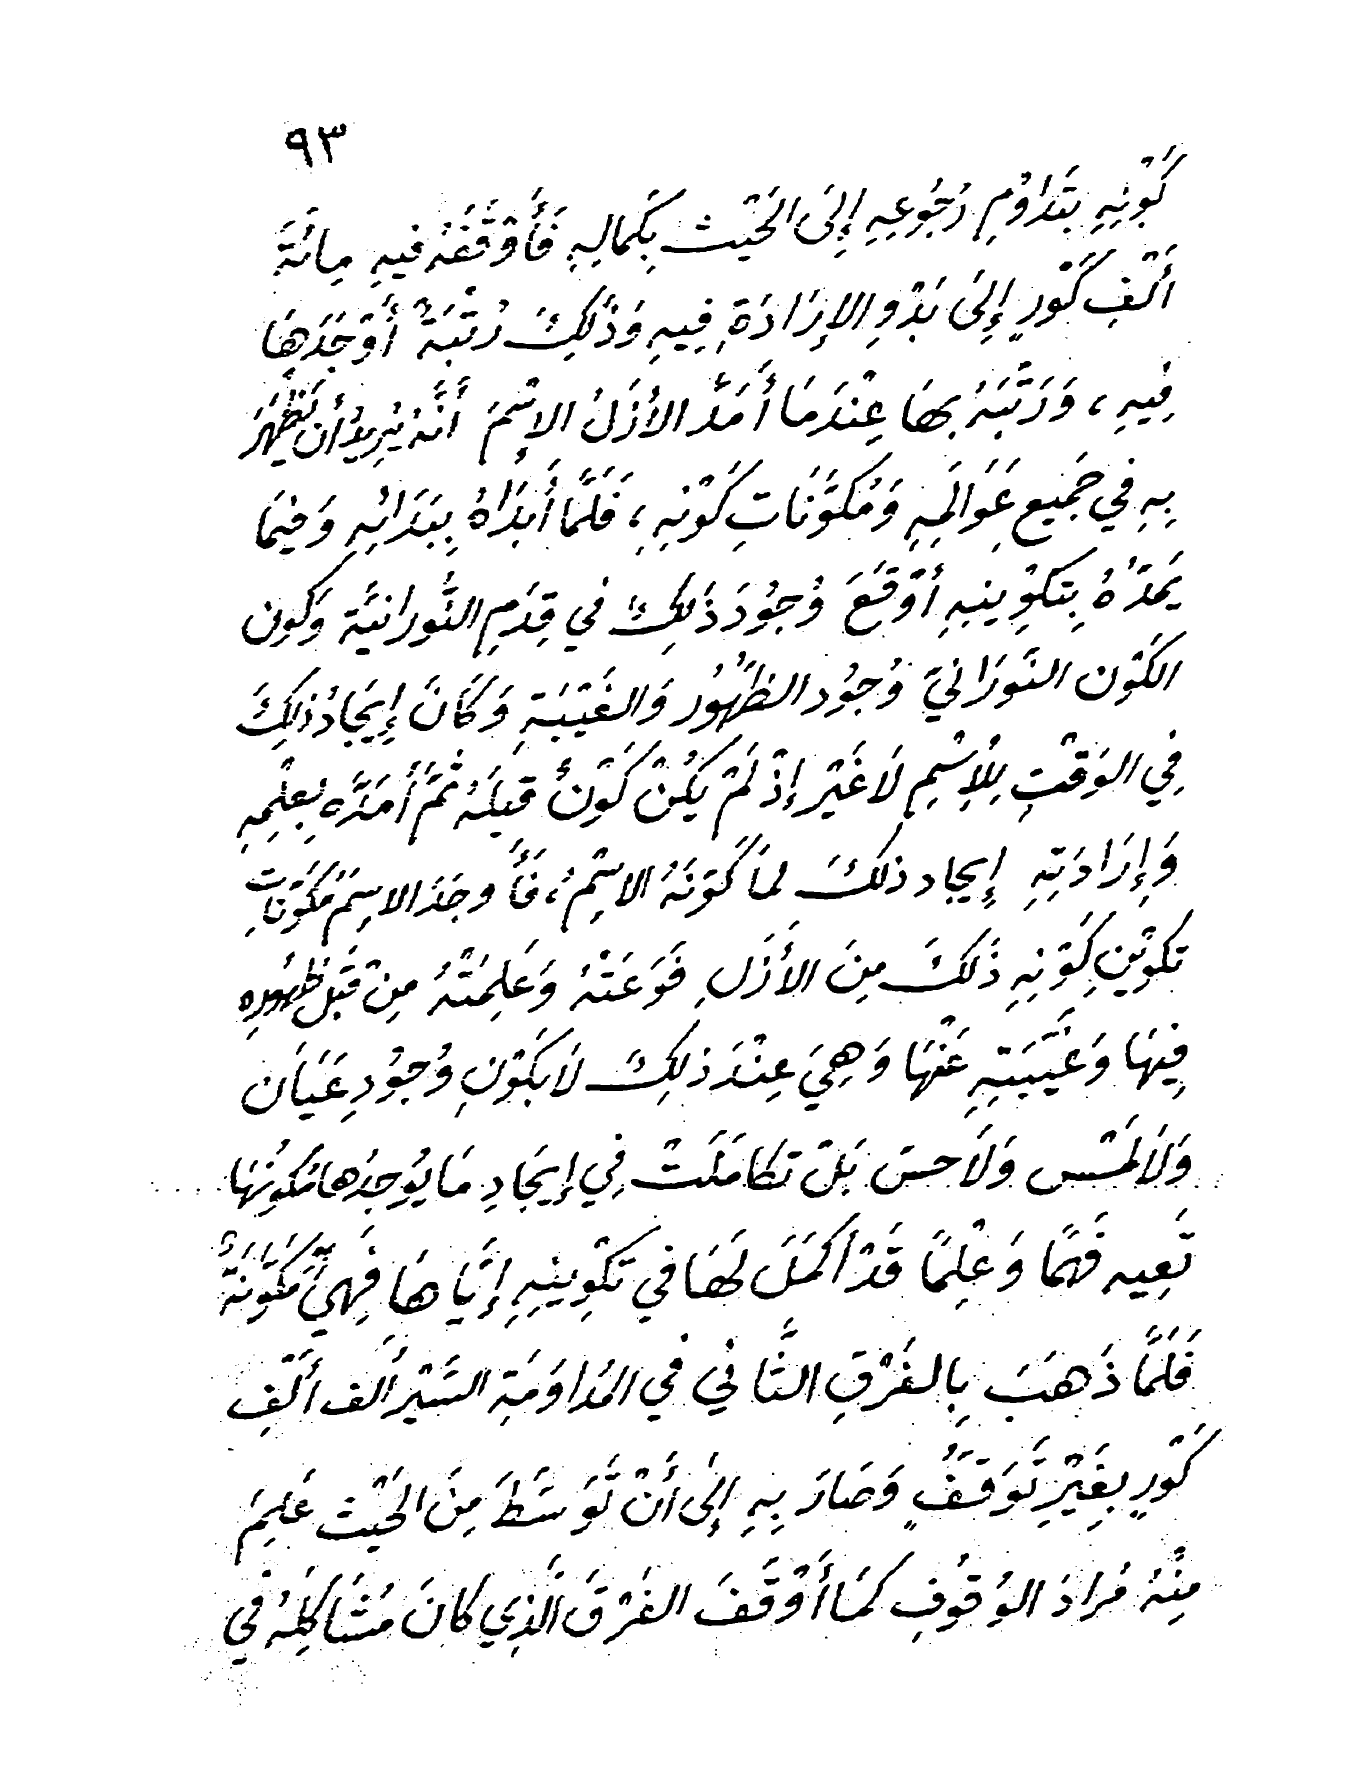 ٩٣
كَوْنِهِ بِتَدَاوُمِ رُجُوعِهِ إِلَى الحَيْث بِكَمالِهِ فَأَوْقَفَهُ فيهِ مِائَةَ
أَلْفِ كَوْرٍ إِلَى بَدْوِ الإِرَادَةِ فِيهِ وَذَلِكَ رُتْبَةٌ أَوْجَدَهَا
فِيهِ، وَرَتَّبَهُ بِهَا عِنْدَمَا أَمَدَّ الأَزَلُ الإِسْمَ أَنَّهُ يُرِيدُ أَن يَظْهَرَ
بِهِ فِي جَمِيعِ عَوَالِمِهِ وَمُكَوَّنَاتِ كَوْنِهِ، فَلَمَّا أَبْدَاهُ بِبَدَائِهِ وَفِيمَا
يَمُدُّهُ بِتَكْوِينِهِ أَوْقَعَ وُجُودَ ذَلِكَ في قِدَمِ النُّورَانِيَّة وَكَون
الكَوْن النَّورَانِيَّ وُجُود الظُّهُور وَالغَيْبَةِ وَكَانَ إِيجَادُ ذلِكَ
فِي الوَقْتِ لِلْإِسْمِ لاَ غَيْر إِذْ لَمْ يَكُنْ كَوْنٌ قَبلَهُ ثُمَّ أَمَدَّهُ بِعِلْمِهِ
وَإِرَادَتِهِ إِيجاد ذلكَ لمَا كَوَّنَهُ الاِسْمُ، فَأَوجَدَ الاسِمُ مُكَوَّنَاتِ
تَكْوِينِ كَوْنِهِ ذَلكَ مِنَ الأَزَلِ فَوَعَتْهُ وَعَلِمَتْهُ مِنْ قَبْل ظُهُورِهِ
فِيهَا وَغَيْبَتِهِ عَنْهَا وَهِيَ عِنْدَ ذلِكَ لاَ بَكَوْنِ وُجُودِ عَيَان
وَلاَ لَمْس وَلاَ حسّ بَلْ تكامَلَتْ فِي إِيجَادِ مَا يُوجِدُها مُكَوِّنُهَا
تَعِيه فَهمًا وَعِلْمًا قَدْ أَكمَلَ لَهَا في تَكْوِينِهِ إِيَّاهَا فَهِيَ مُكَوَّنَةٌ
فَلَمَّا ذَهَبَ بِالفَرْقِ الثَّانِي في المُدَاوَمَةِ السَّيْر أَلف أَلْفِ
كَوْرٍ بِغَيْرِ تَوَقُّفٍ وَصَارَ بِهِ إِلَى أَنْ تَوَسَّطَ مِنَ الحَيْث عَلِمَ
مِنْهُ مُرادَ الوُقُوفِ كمَا أَوْقَفَ الفَرْقَ الَّذِي كانَ مُشَاكِلَهُ فِي